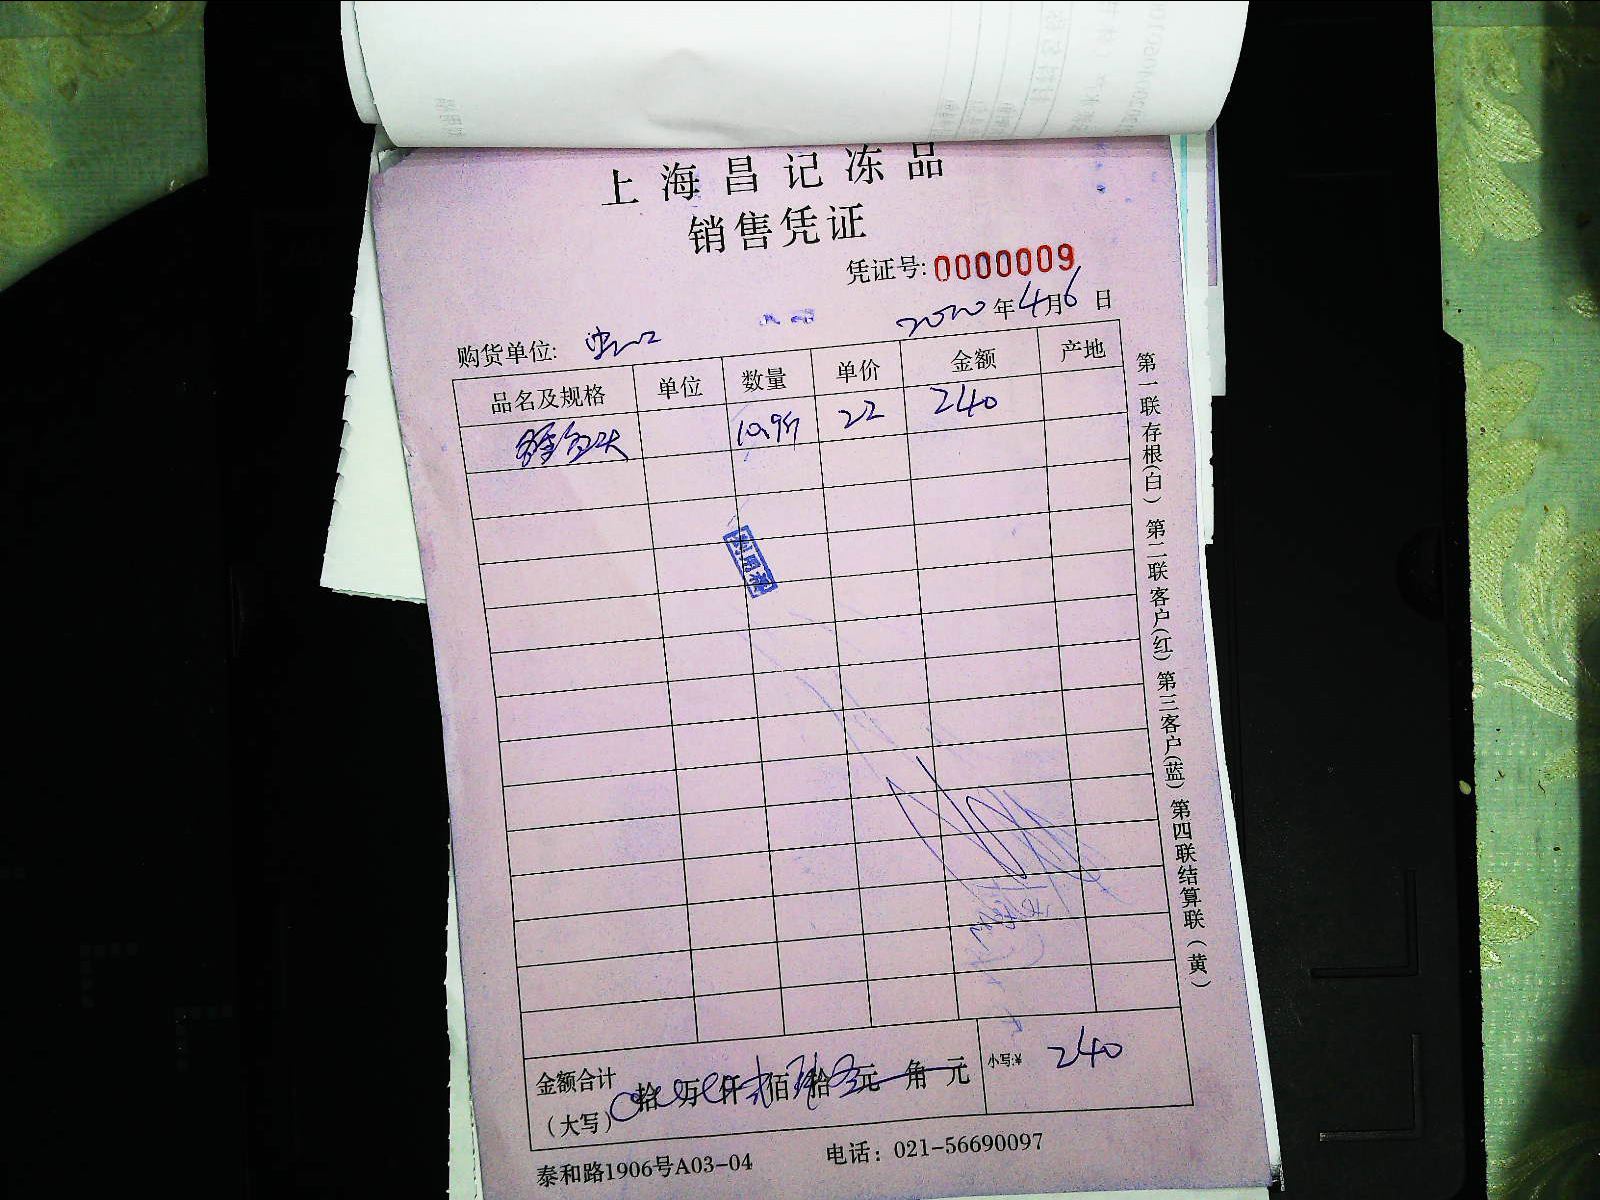 上海昌记冻品
销售凭证
凭证号: 0000009
2020年4月6日
购货单位: 虫二口
品名及规格 单位 数量 单价 金额 产地
10.9斤 22 240
金额合计 (大写) 拾 万 仟 佰 拾 元 角 元 小写:¥ 240
泰和路1906号A03-04 电话：021-56690097
第一联存根(白) 第二联客户(红) 第三客户(蓝) 第四联结算联(黄)